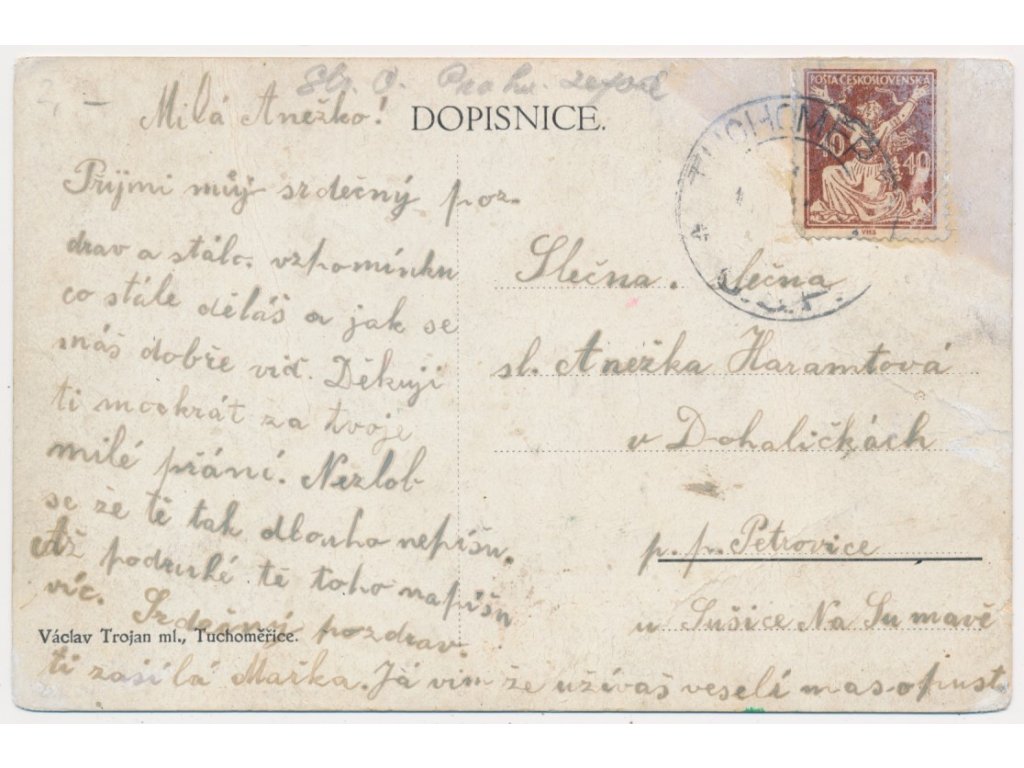 Milá Anežko!
DOPISNICE.
POŠTA ČESKOSLOVENSKÁ
40
TUCHOMĚŘ
Přijmi můj srdečný poz-
drav a stálo. vzpomínku
co stále děláš a jak se
máš dobře viď. Děkuji
ti mockrát za tvoje
milé přání. Nezlob
se že tě tak dlouho nepíšu.
až podruhé tě toho napíšu
víc. Srdečný pozdrav.
ti zasílá Mařka. Já vim že užívaš veselí masopust
Václav Trojan ml., Tuchoměřice.
Slečna. slečna
sl. Anežka Haramtová
v Dohaličkách
p. p. Petrovice
u Sušice Na Šumavě